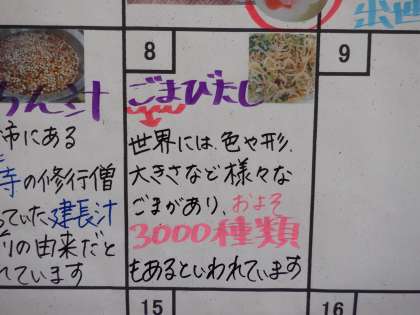 出世
8
9
ちん汁
ごまびたし
市にある
寺の修行僧
っていた建長汁
前の由来だと
れています
世界には、色や形、
大きさなど様々な
ごまがあり、およそ
3000種類
もあるといわれています
15
16